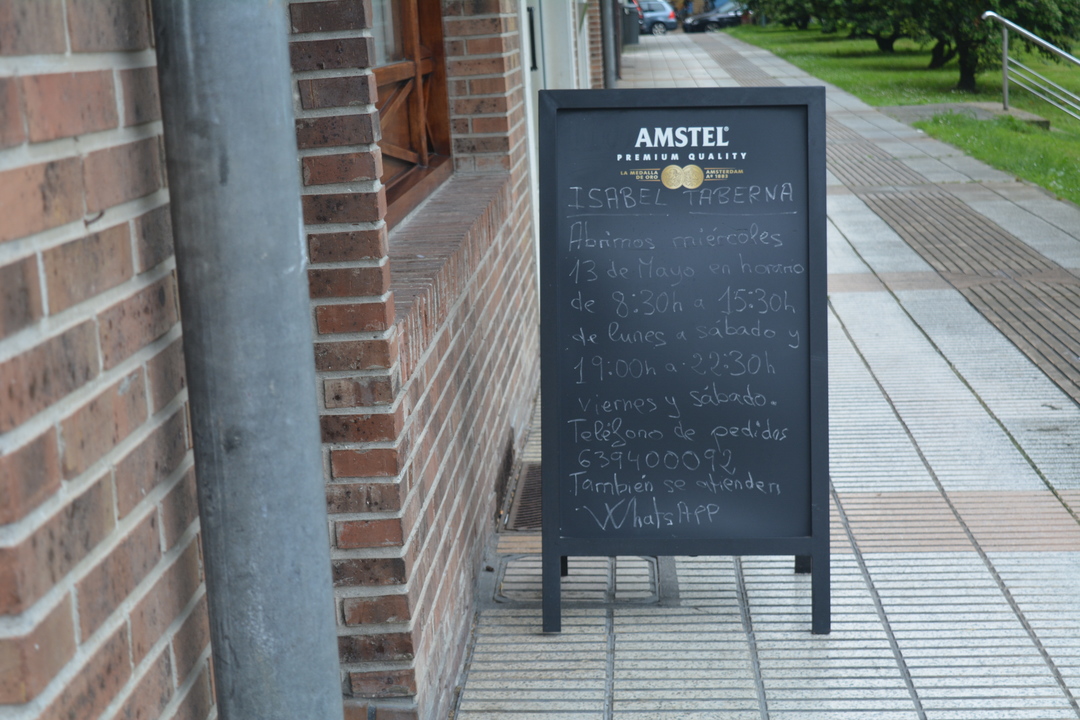 AMSTEL
PREMIUM QUALITY
LA MEDALLA DE ORO
AMSTERDAM Aº 1883
ISABEL TABERNA
Abrimos miércoles
13 de Mayo en horario
de 8:30h a 15:30h
de lunes a sábado y
19:00h a 22:30h
viernes y sábado.
Teléfono de pedidos
639400092
También se atienden
WhatsApp